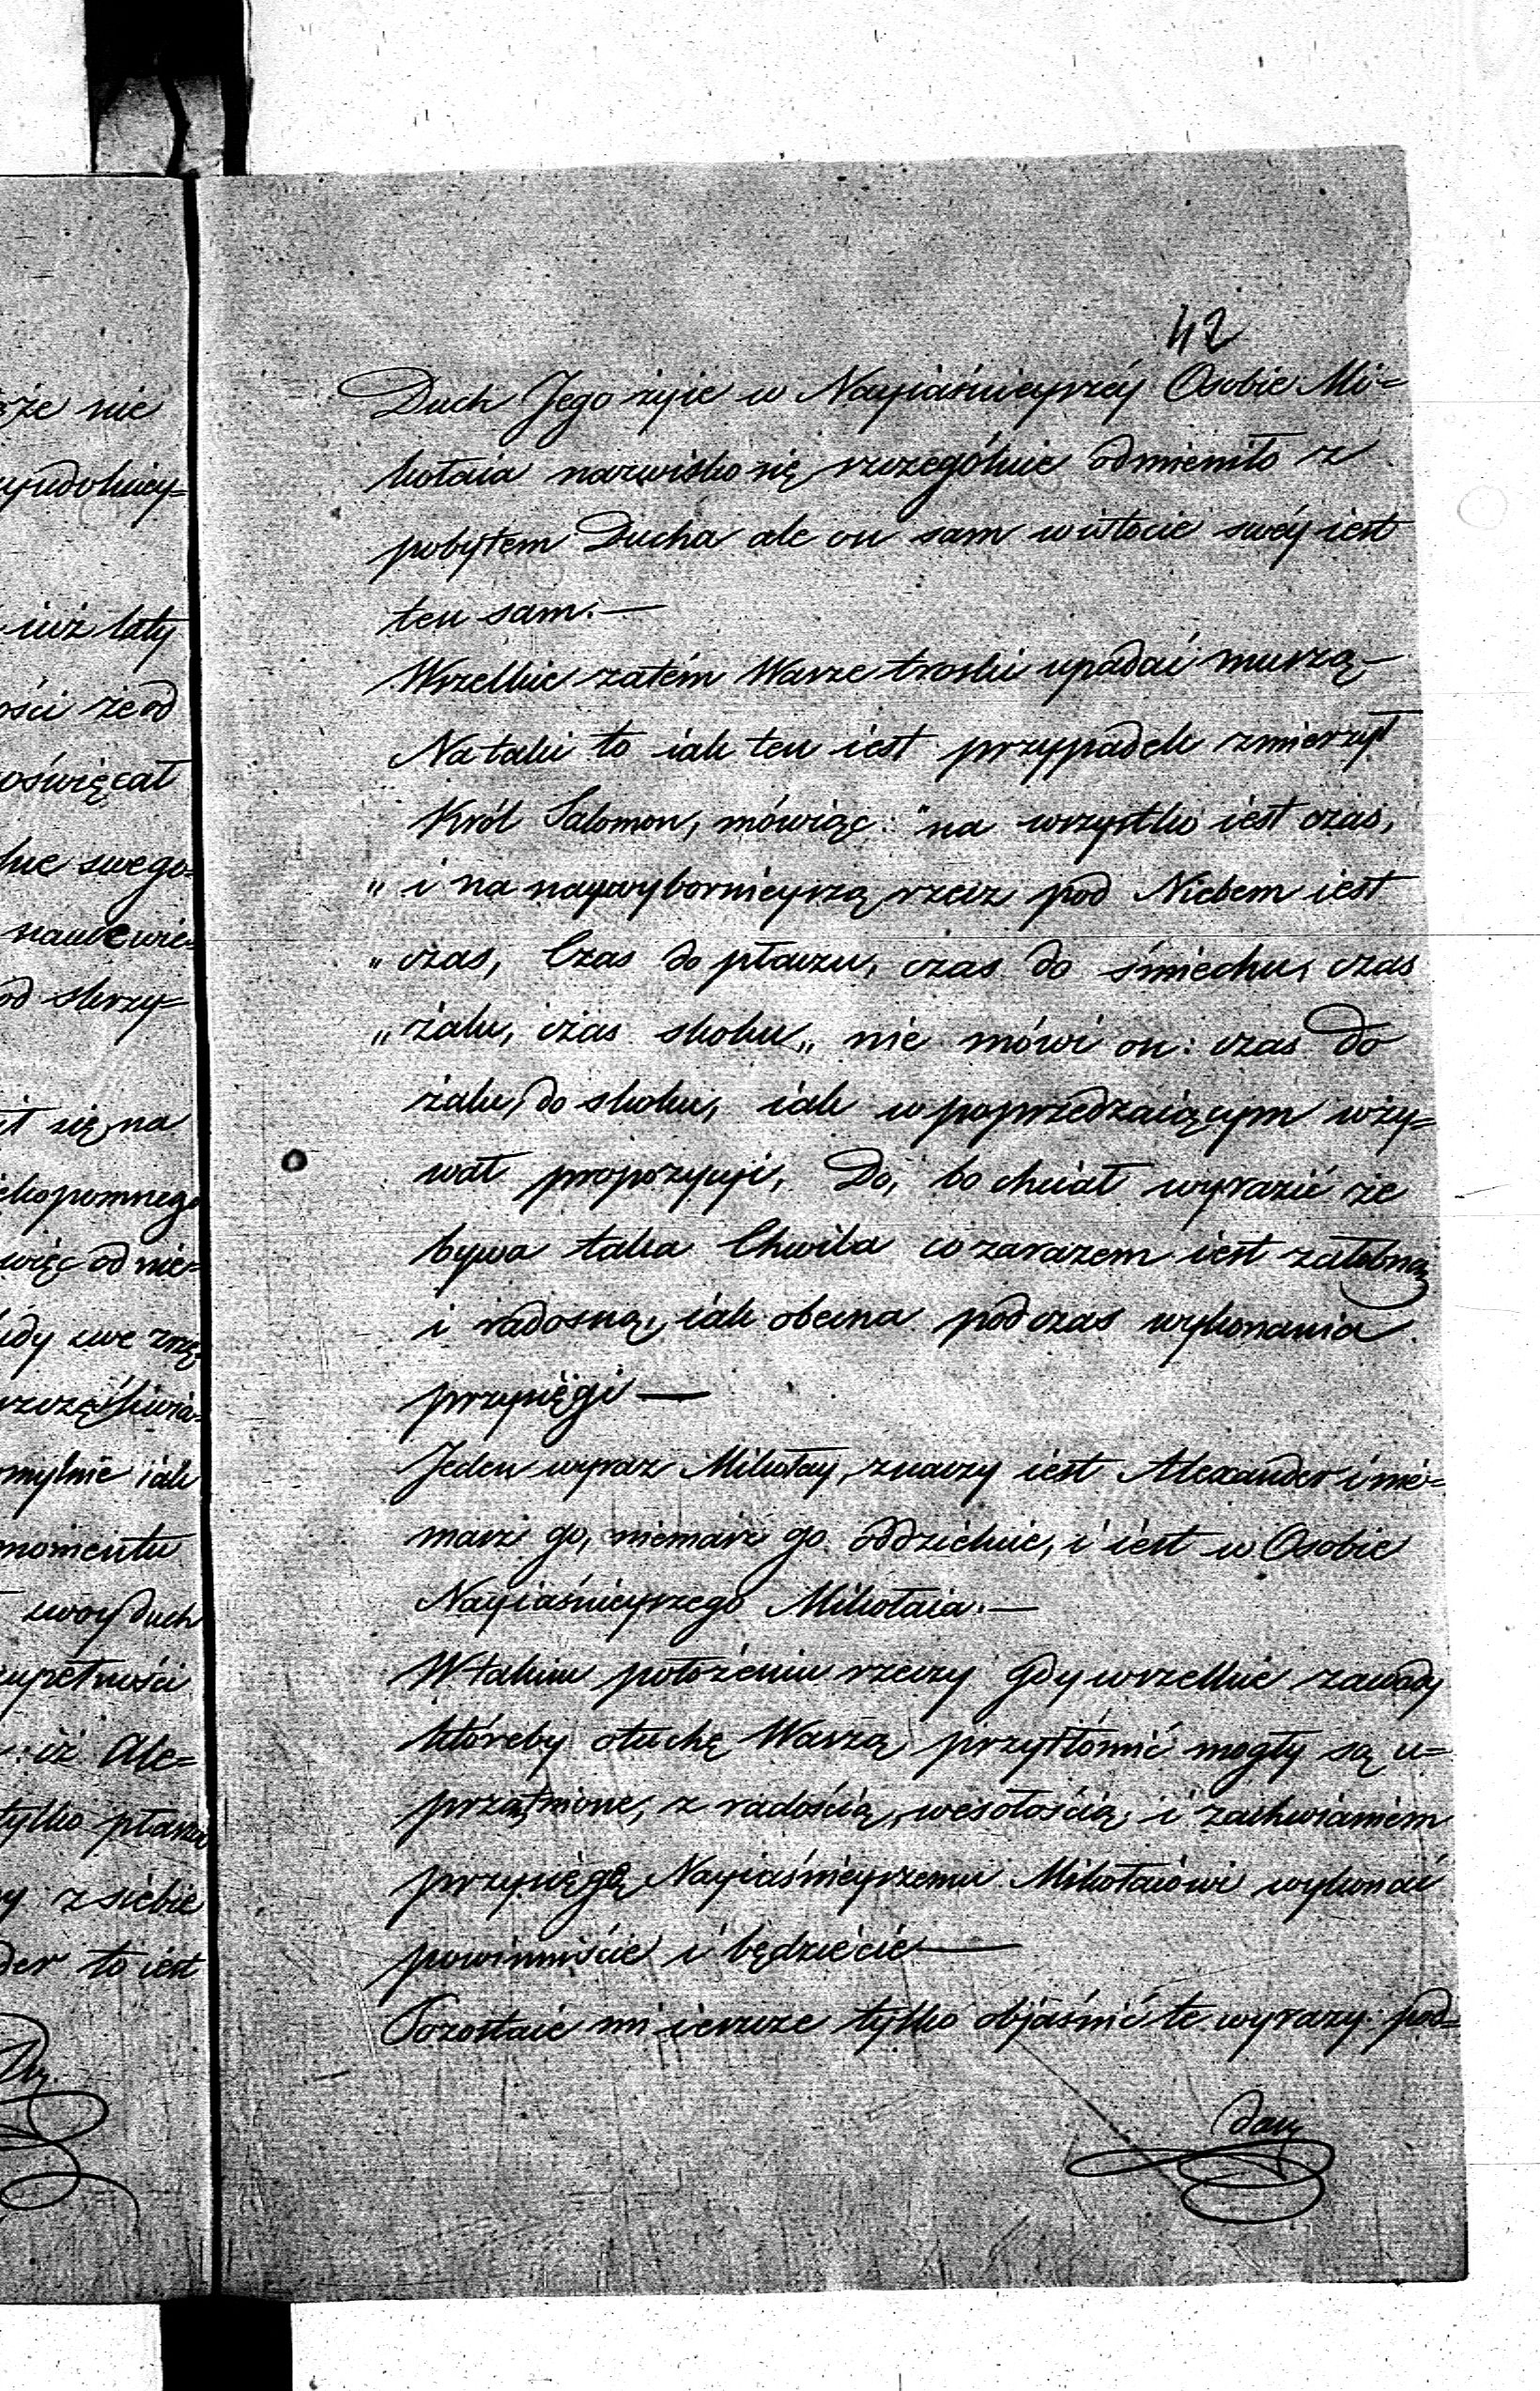 42
Duch Jego żyie w Nayiaśnieyszéy Osobie Mi=
kołaia nazwisko się szczególnie odmieniło z
pobytem Ducha ale on sam w istocie swéy iest
ten sam.—
Wszelkie zatém Wasze troski upadać muszą—
Na taki to iak ten iest przypadek zmierzył
Król Salomon, mówiąc: "na wszystko iest czas,
„ i na naywybornieyszą rzecz pod Niebem iest
„ czas, Czas do płaczu, czas do śmiechu, czas
„ żalu, czas skoku„ nie mówi on: czas do
żalu, do skoku, iak w poprzedzaiącym uży=
wał propozycyi, Do, bo chciał wyrazić że
bywa taka Chwila co zarazem iest żałobną
i radosną, iak obecna podczas wykonania
przysięgi—
Jeden wyraz Mikołay, znaczy iest Alexander i nie=
masz go, niemasz go oddzielnie, i iest w Osobie
Nayiaśnieyszego Mikołaia.—
W takim położeniu rzeczy gdy wszelkie zawady
któreby otuchę Waszą przytłómić mogły są u=
przątnione, z radością, wesołością, i zachwianiem
przysięgę Nayiaśnieyszemu Mikołaiowi wykonać
powinniście i będziecie—
Pozostaie mi ieszcze tylko objaśnić te wyrazy: pod=
dany
że nie
iuż laty
ości że od
oświęcał
swego=
od skrzy=
się na
kopomnego
więc od nie=
omylnie iak
momentu
swoy duch
upełności
iż Ale=
tylko płasz
z siebie
der to iest